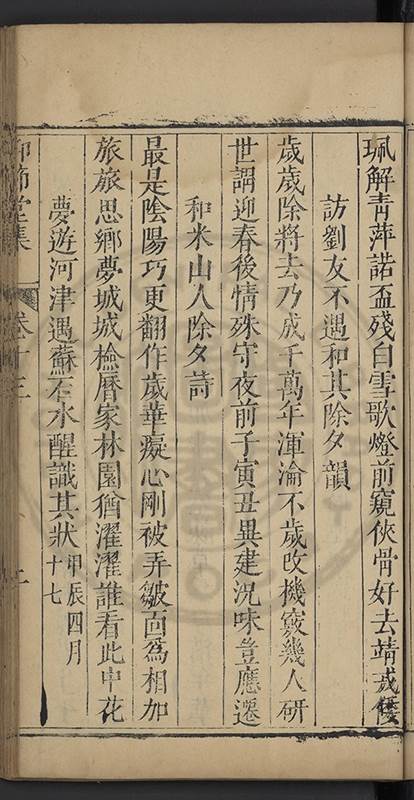 珮解青萍諾盃殘白雪歌燈前窺俠骨好去靖戎倭
訪劉友不遇和其除夕韻
歲歲除將去乃成千萬年渾淪不歲改機竅幾人研
世謂迎春後情殊守夜前子寅丑異建況味豈應遷
和米山人除夕詩
最是陰陽巧更翻作歲華癡心剛被弄皺面為相加
旅旅思鄉夢城城檢曆家林園猶濯濯誰看此中花
夢遊河津遇蘇石水醒識其狀甲辰四月十七
仰節堂集 卷十三